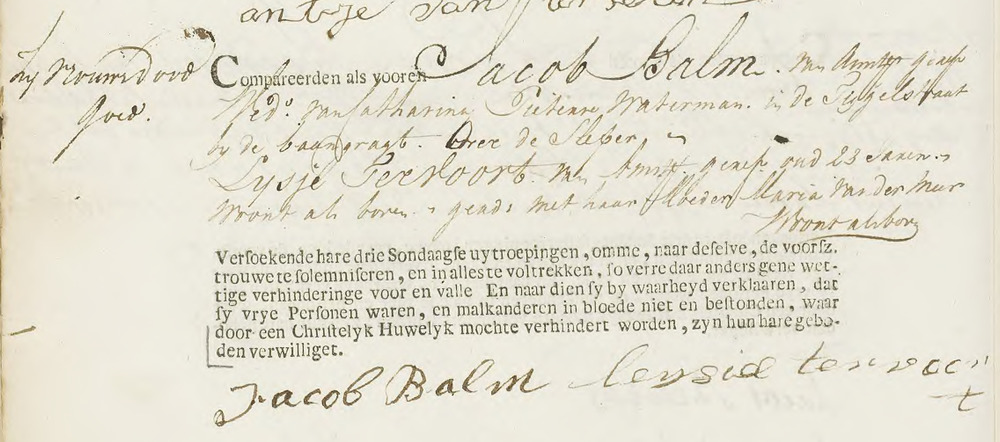 antije van
Zy Vrouws Dood
goed.
Compareerden als vooren Jacob Balm. van Amst. geref
Wed.r van Catharina Pieternel Waterman. in de Tuijgelstraat
by de baangragt. over de Sleper,
Lysje Tervoort. van Amst. geref. oud 23 Jaren.
Woont als boven. geads met haar Moeder Maria van der Mur
Woont als bov
Versoekende hare drie Sondaagse uytroepingen, omme, naar deselve, de voorsz.
trouwe te solemniseren, en in alles te voltrekken, so verre daar anders gene wet-
tige verhinderinge voor en valle En naar dien sy by waarheyd verklaaren, dat
sy vrye Personen waren, en malkanderen in bloede niet en bestonden, waar
door een Christelyk Huwelyk mochte verhindert worden, zyn hun hare gebo-
den verwilliget.
Jacob Balm lensie tervoort